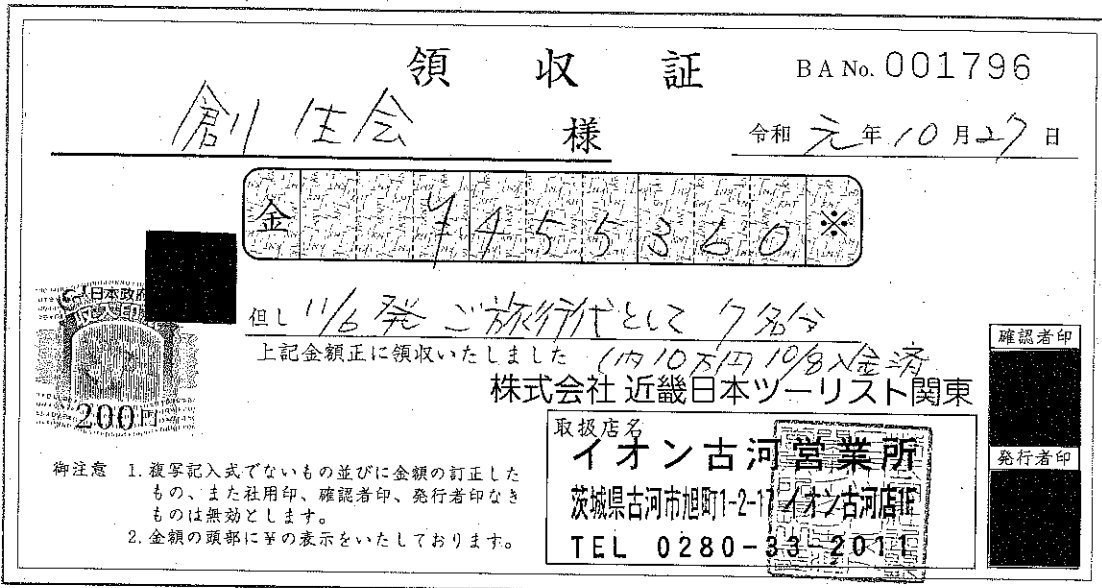 領収証
BA No. 001796
創生会 様
令和 元年 10月27日
金 ¥455360※
但し 11/6発 ご旅行代として 7名分
上記金額正に領収いたしました (内10万円 10/8入金済
株式会社 近畿日本ツーリスト関東
取扱店名
イオン古河営業所
茨城県古河市旭町1-2-17 イオン古河店1F
TEL 0280-33-2011
確認者印
発行者印
日本政府
収入印紙
200円
御注意 1. 複写記入式でないもの並びに金額の訂正した
もの、また社用印、確認者印、発行者印なき
ものは無効とします。
2. 金額の頭部に¥の表示をいたしております。